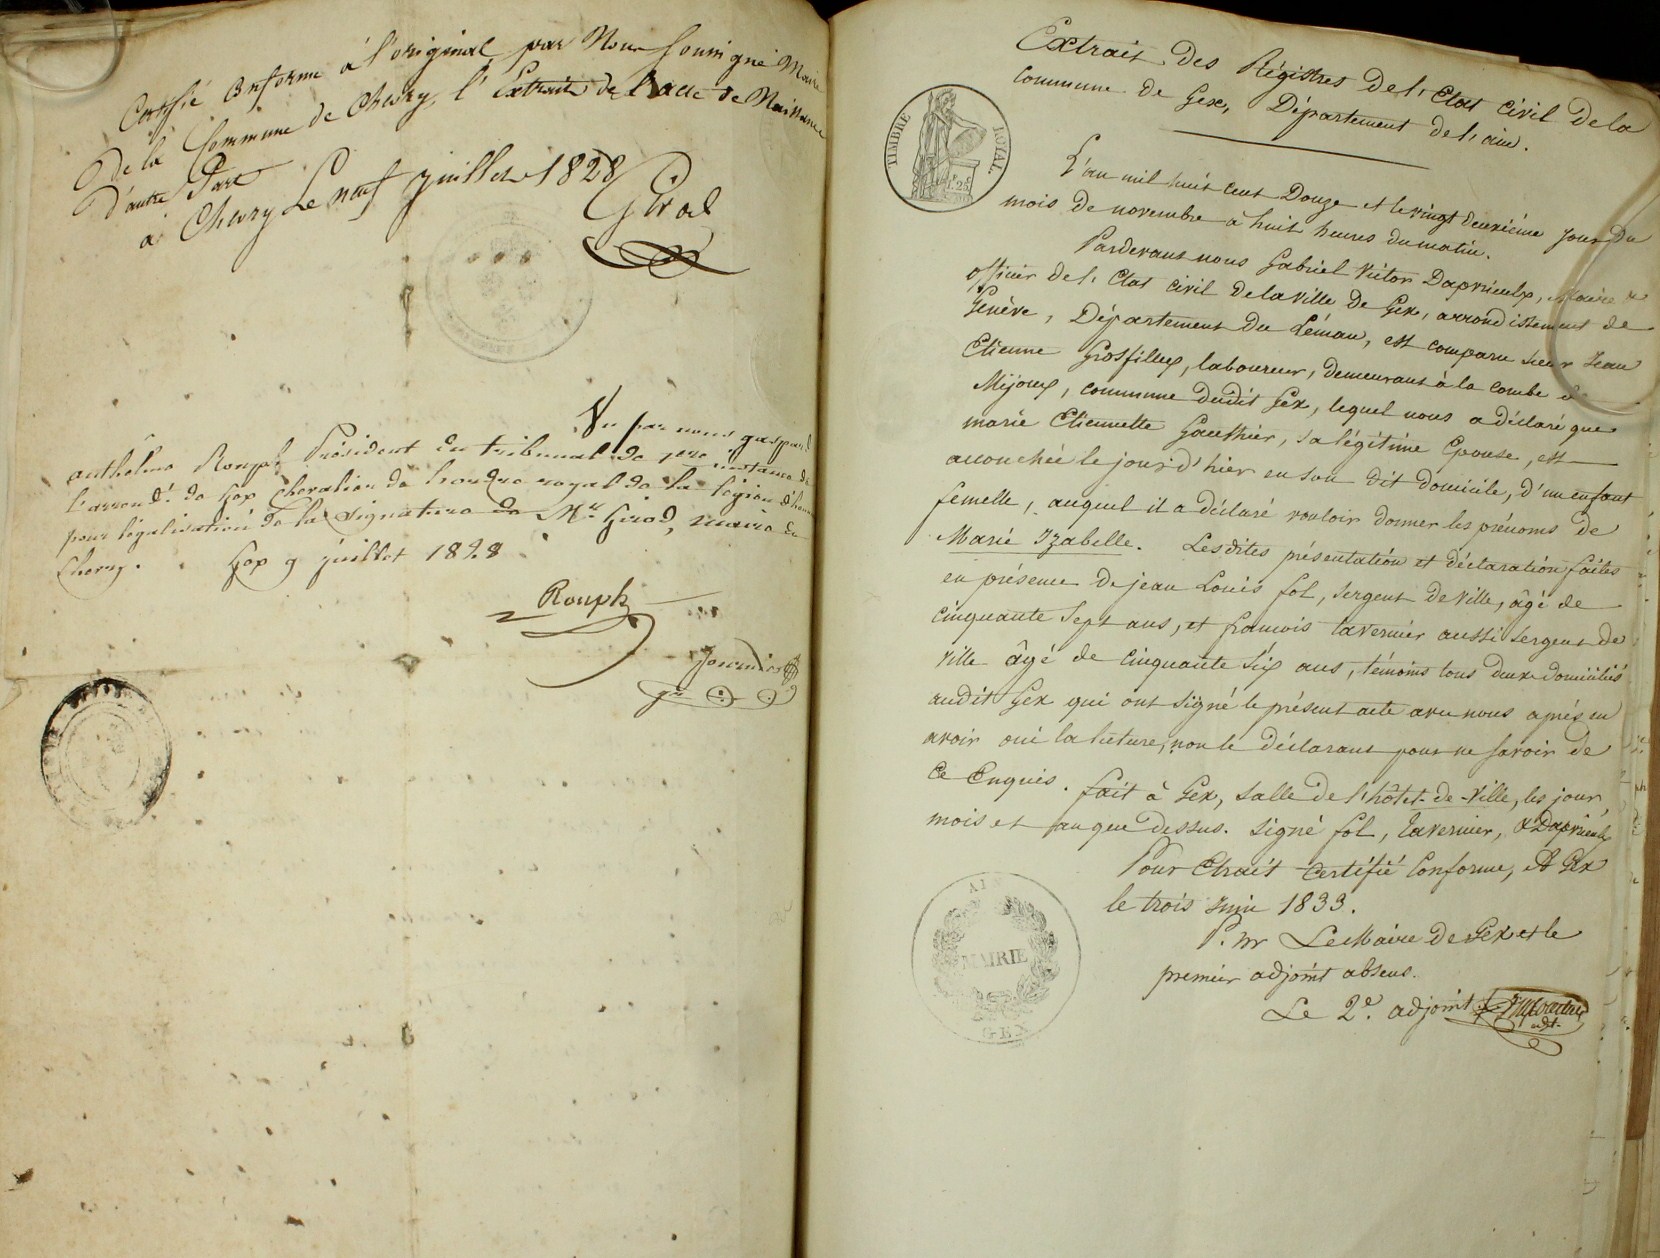 Certifié Conforme à l'original par Nous soussigné Maire
De la Commune de Chevry, l'Extrait de l'acte de Naissance
D'autre Part
à Chevry Le neuf juillet 1828
Girod
Vu par nous gaspard
anthelme Rouph Président du tribunal de 1ere instance de
l'arrond.t de Gex Chevalier de l'ordre royal de la légion d'hon
pour légalisation de la signature de Mr Girod, maire de
Chevry. Gex 9 juillet 1828
Rouph
Extrait des Régistres De l'Etat Civil De la
Commune de Gex, Département de l'ain.
TIMBRE ROYAL
1 F. 25
L'an mil huit cent Douze et le vingt deuxième jour Du
mois de novembre à huit heures du matin.
Pardevant nous Gabriel Victor Dapvieulx, Maire &
officier de l'Etat civil de la Ville De Gex, arrondissement de
Genève, Département du Léman, est comparu sieur Jean
Etienne Grosfilley, laboureur, demeurant à la combe de
Mijoux, commune dudit Gex, lequel nous a déclaré que
marie Etiennette Gauthier, sa légitime Epouse, est
accouchée le jour d'hier en son dit domicile, d'un enfant
femelle, auquel il a déclaré vouloir donner les prénoms de
Marie Izabelle. Lesdites présentation et déclaration faites
en présence de jean Louis fol, sergent de Ville, âgé de
cinquante sept ans, et francois tavernier aussi sergent de
ville âgé de cinquante six ans, témoins tous deux domiciliés
audit Gex qui ont signé le présent acte avec nous après en
avoir oui la lecture, non le déclarant pour ne savoir de
Ce Enquis. fait à Gex, salle de l'hôtel-de-Ville, les jour,
mois et an que dessus. signé fol, tavernier, & Dapvieulx
Pour Extrait Certifié Conforme, A Gex
le trois juin 1833.
P. mr Le Maire de Gex et le
premier adjoint absens.
Le 2e. adjoint
AIN
MAIRIE
GEX